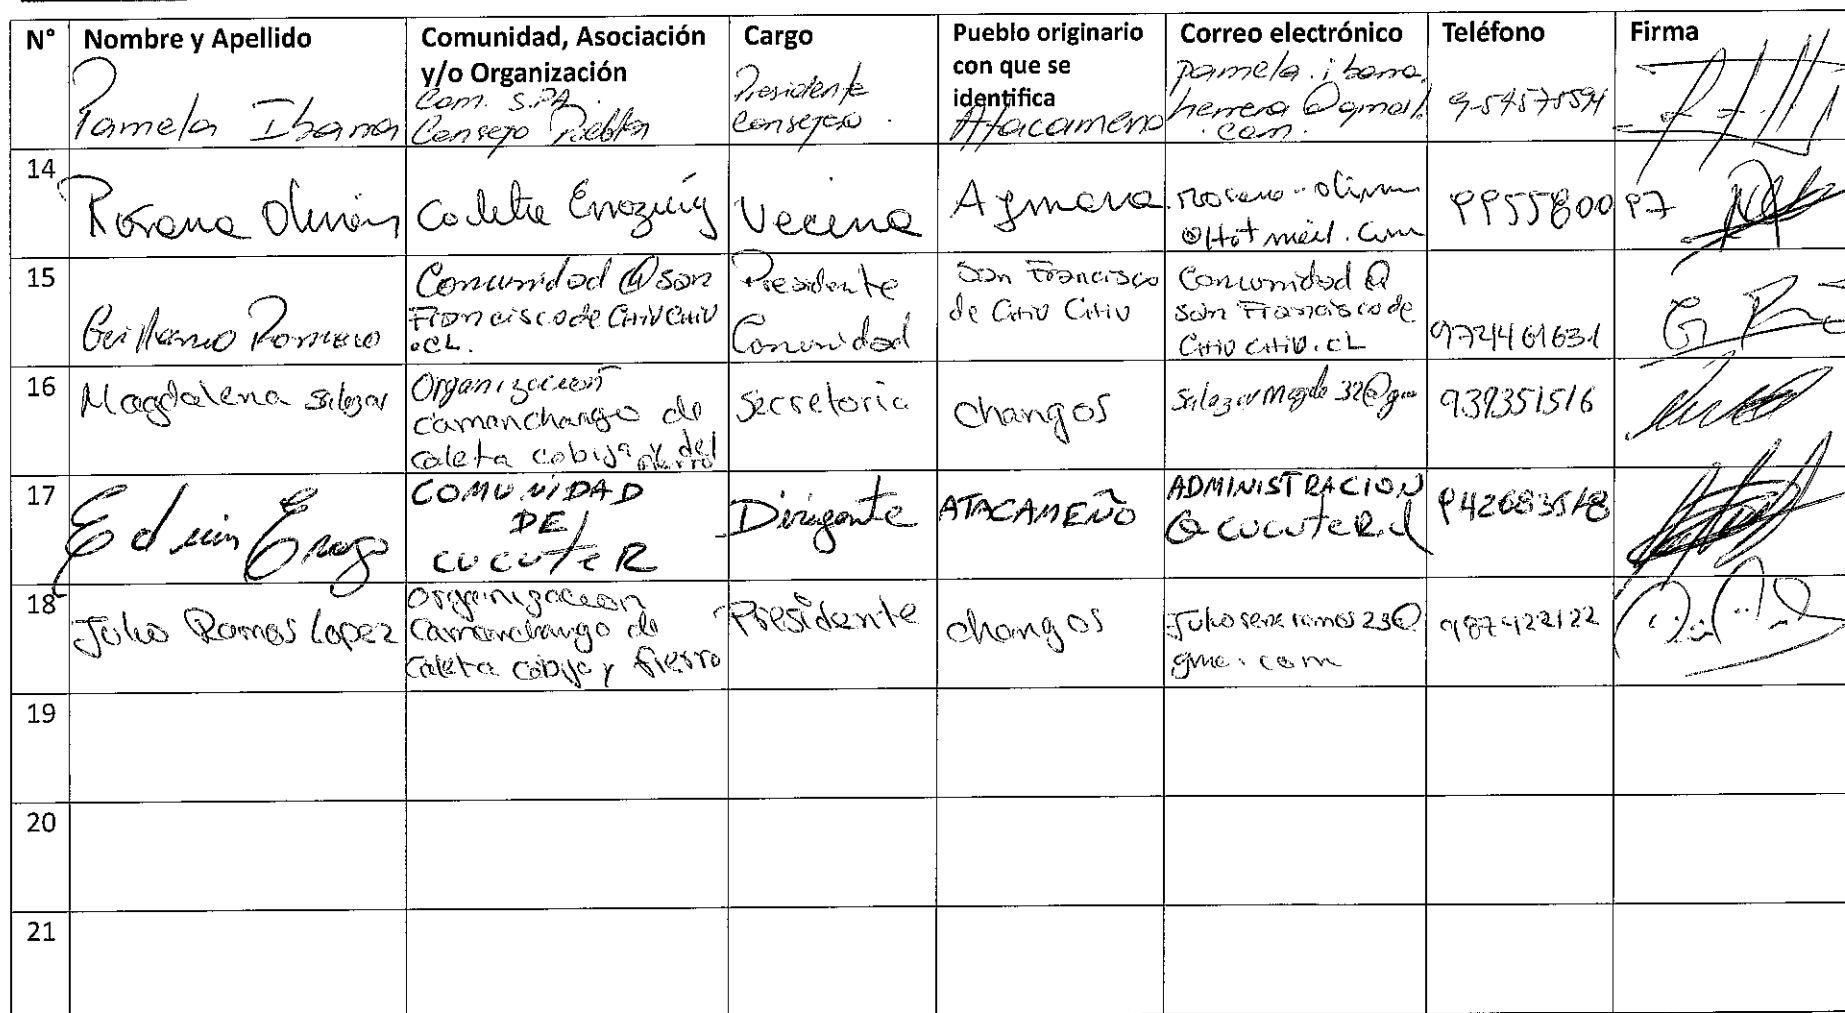 N° Nombre y Apellido Comunidad, Asociación y/o Organización Cargo Pueblo originario con que se identifica Correo electrónico Teléfono Firma
Pamela Ibarra Com. S.PA. Consejo Presidente Consejero. Atacameno pamela.ibarra.herrera@gmail.com. 9-54575594
14 Rosana Caleta Vecina Aymara @Hotmail.com 995580097
15 Guillermo Romero Comunidad @ san Francisco de CHIU CHIU .CL. Presidente Comunidad San Francisco de CHIU CHIU Comunidad @ san Francisco de CHIU CHIU.CL 9724461631
16 Magdalena Salazar Organización camanchango de caleta cobija y del secretaria changos 939351516
17 Edwin Erazo COMUNIDAD DE CUCUTER Dirigente ATACAMEÑO ADMINISTRACION @CUCUTER.cl 942683518
18 Julio Ramos Lopez organizacion Camanchango de caleta cobija y fierro Presidente changos 987422122
19
20
21